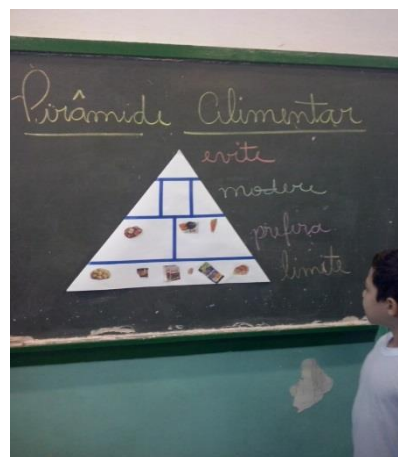 Pirâmide Alimentar
evite
modere
prefira
limite